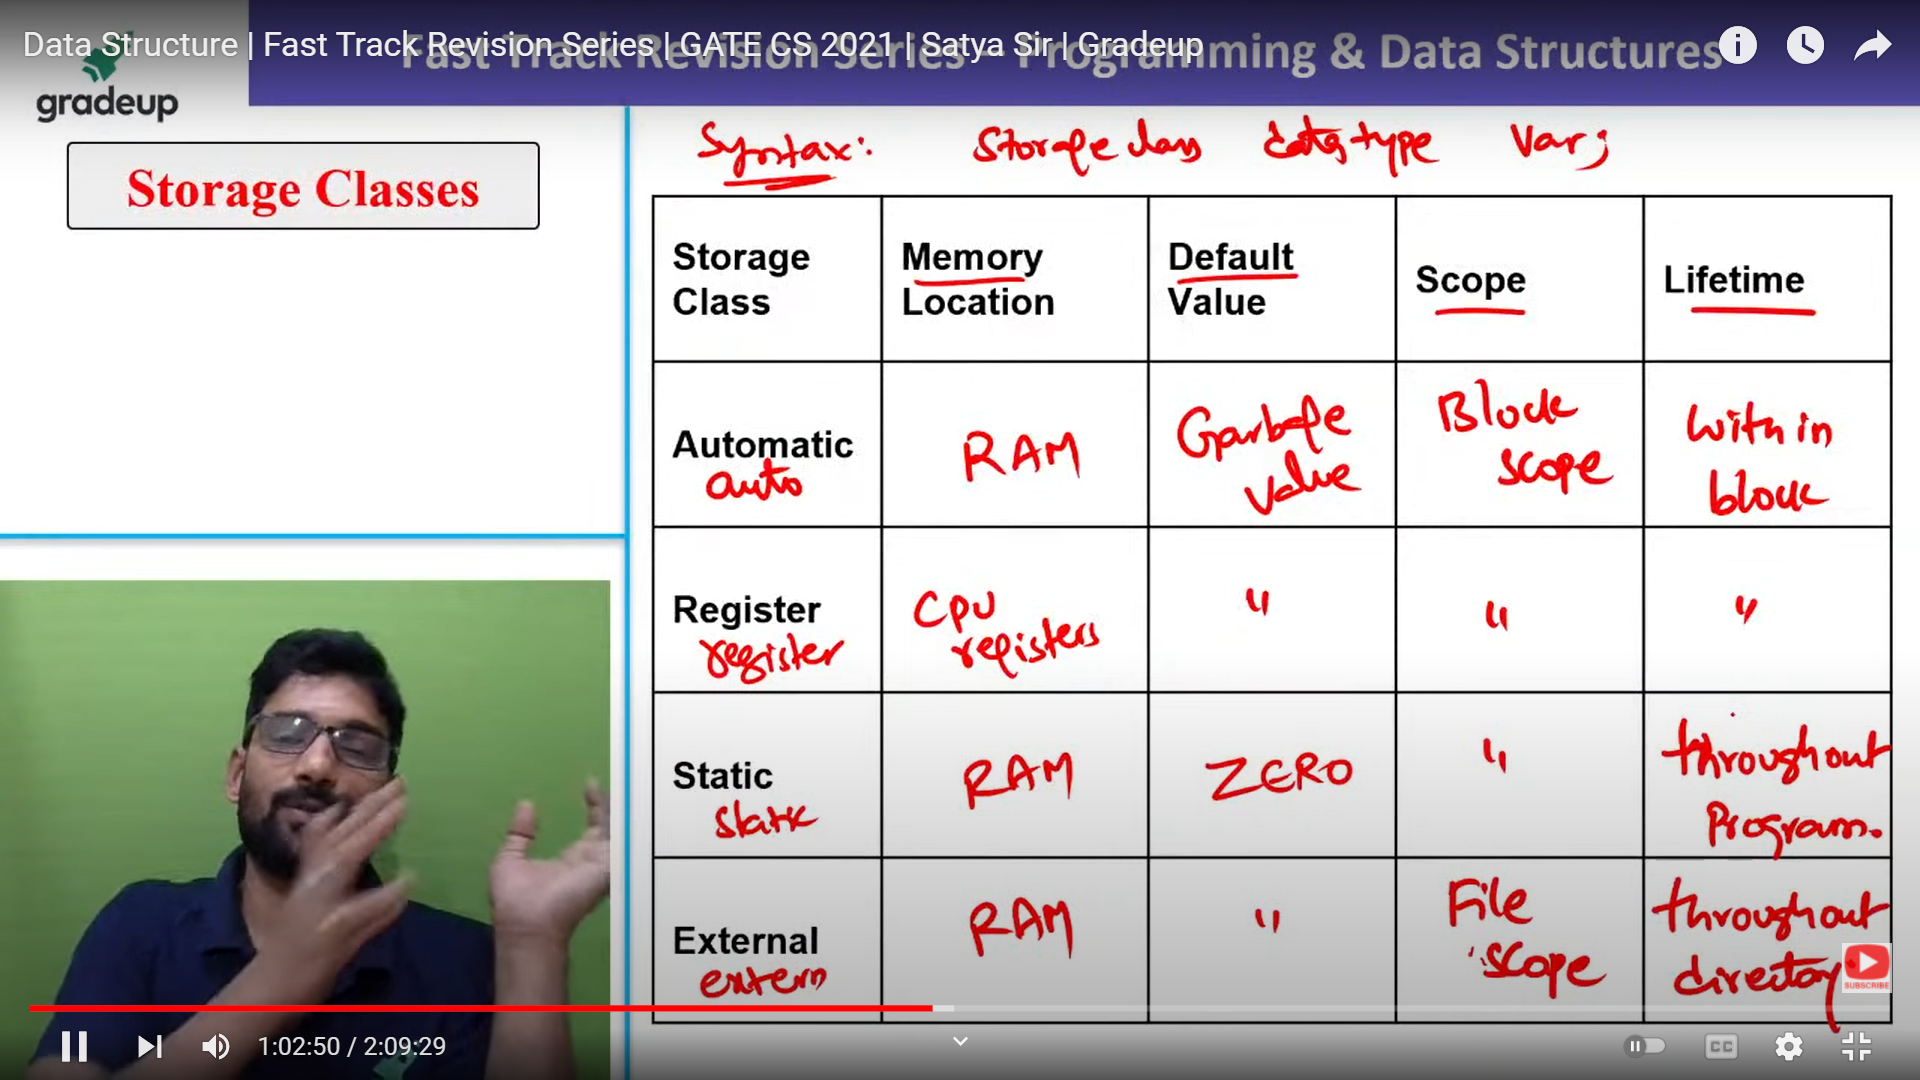 Data Structure | Fast Track Revision Series | GATE CS 2021 | Satya Sir | Gradeup
Fast Track Revision Series - Programming & Data Structures
gradeup
Storage Classes
Syntax: Storage class data type Var;
Storage Class
Memory Location
Default Value
Scope
Lifetime
Automatic
auto
RAM
Garbage
value
Block
scope
with in
block
Register
register
CPU
registers
"
"
"
Static
static
RAM
ZERO
"
throughout
Program.
External
extern
RAM
"
File
scope
throughout
directory
SUBSCRIBE
1:02:50 / 2:09:29
CC